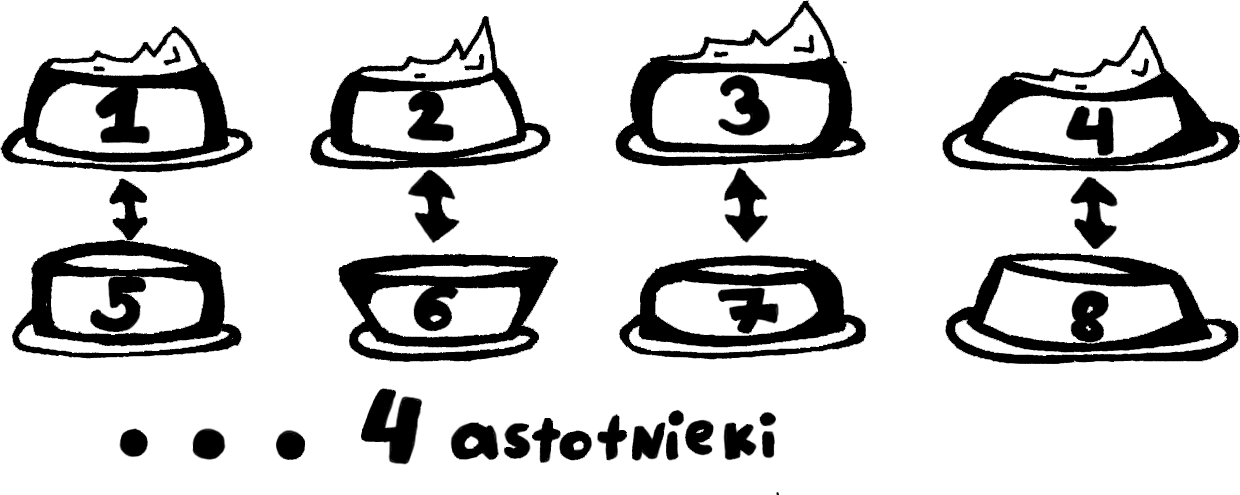 1 2 3 4
5 6 7 8
... 4 astotnieki